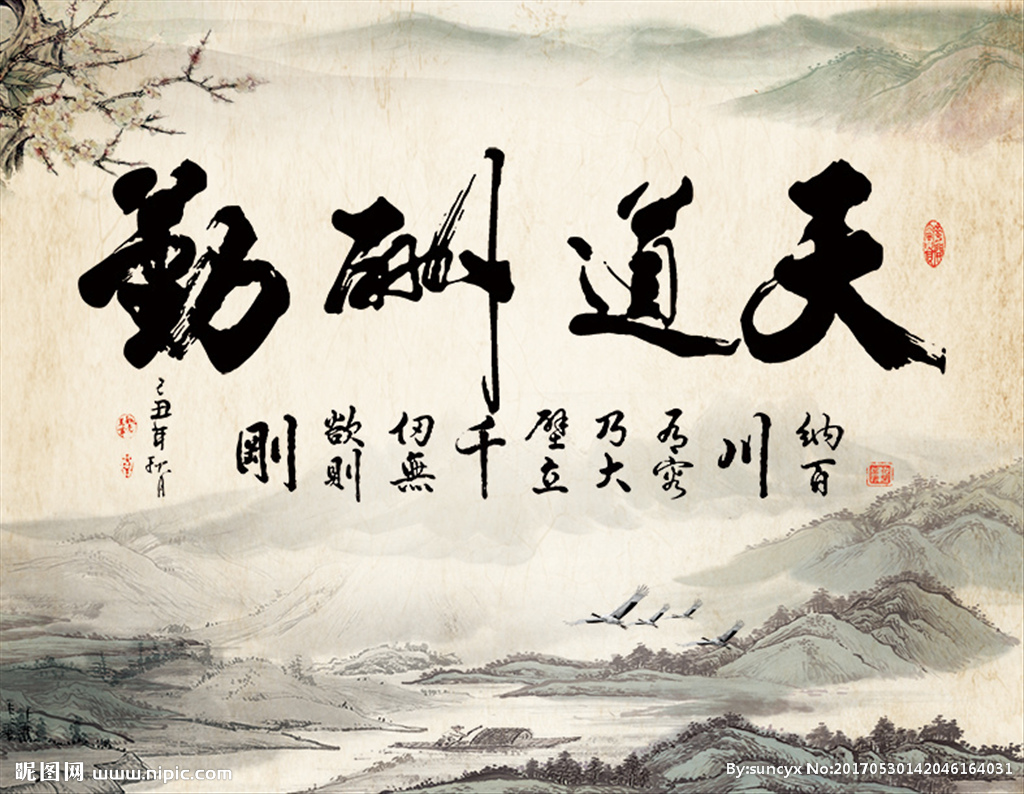 天道酬勤
納百川有容乃大壁立千仞無欲則剛
己丑年秋月
昵图网 www.nipic.com
By:suncyx No:20170530142046164031